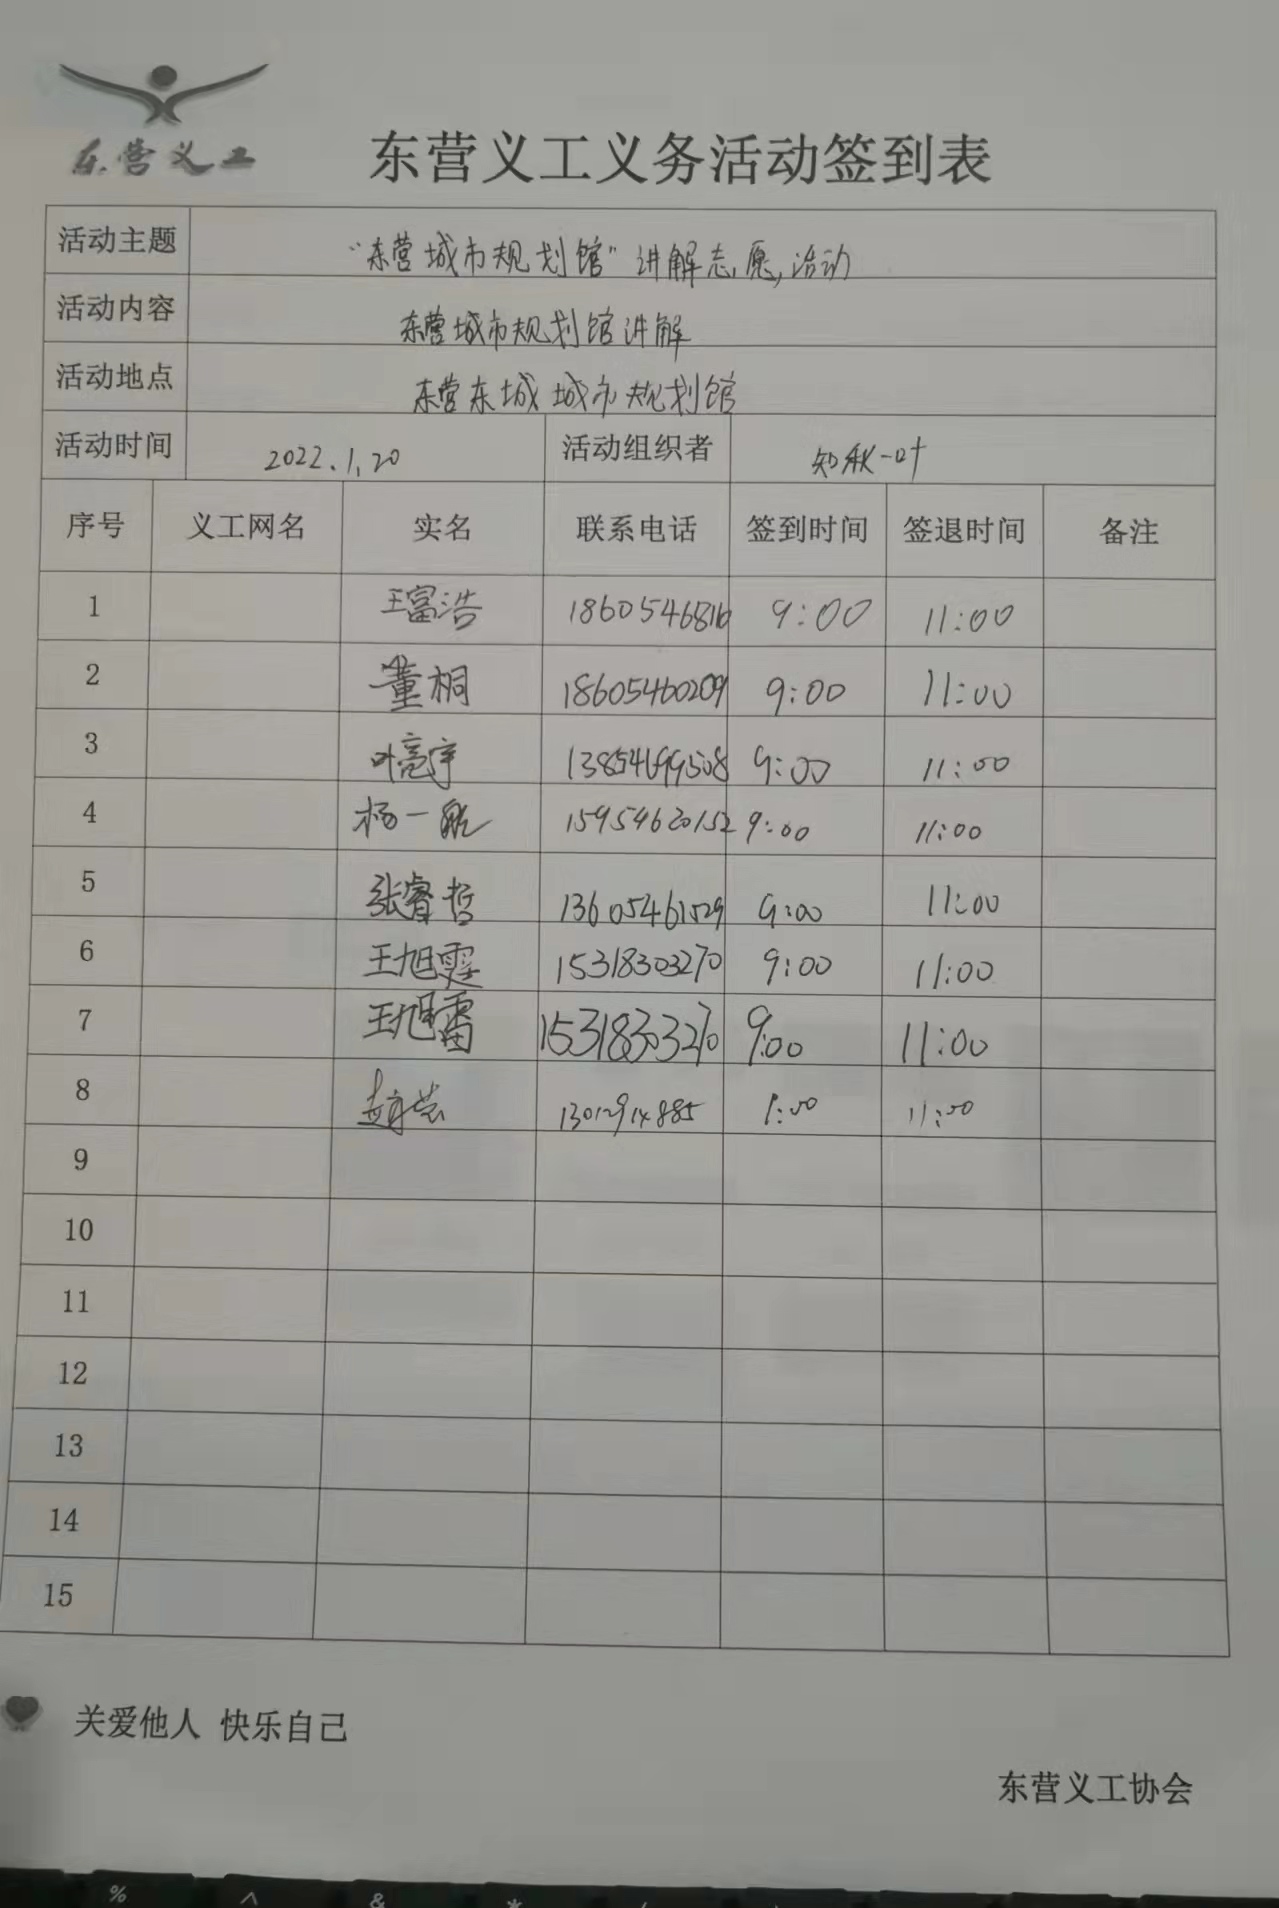 东营义工
东营义工义务活动签到表
活动主题 “东营城市规划馆”讲解志愿活动
活动内容 东营城市规划馆讲解
活动地点 东营东城城市规划馆
活动时间 2022.1.20 活动组织者 知秋一叶
序号 义工网名 实名 联系电话 签到时间 签退时间 备注
1 王富浩 9:00 11:00
2 董桐 18605460209 9:00 11:00
3 叶亮宇 9:00 11:00
4 杨一航 15954620152 9:00 11:00
5 张睿哲 13605461529 9:00 11:00
6 王旭霆 15318303270 9:00 11:00
7 王旭雷 15318303270 9:00 11:00
8 11:00
9
10
11
12
13
14
15
关爱他人 快乐自己
东营义工协会
% ^ & *